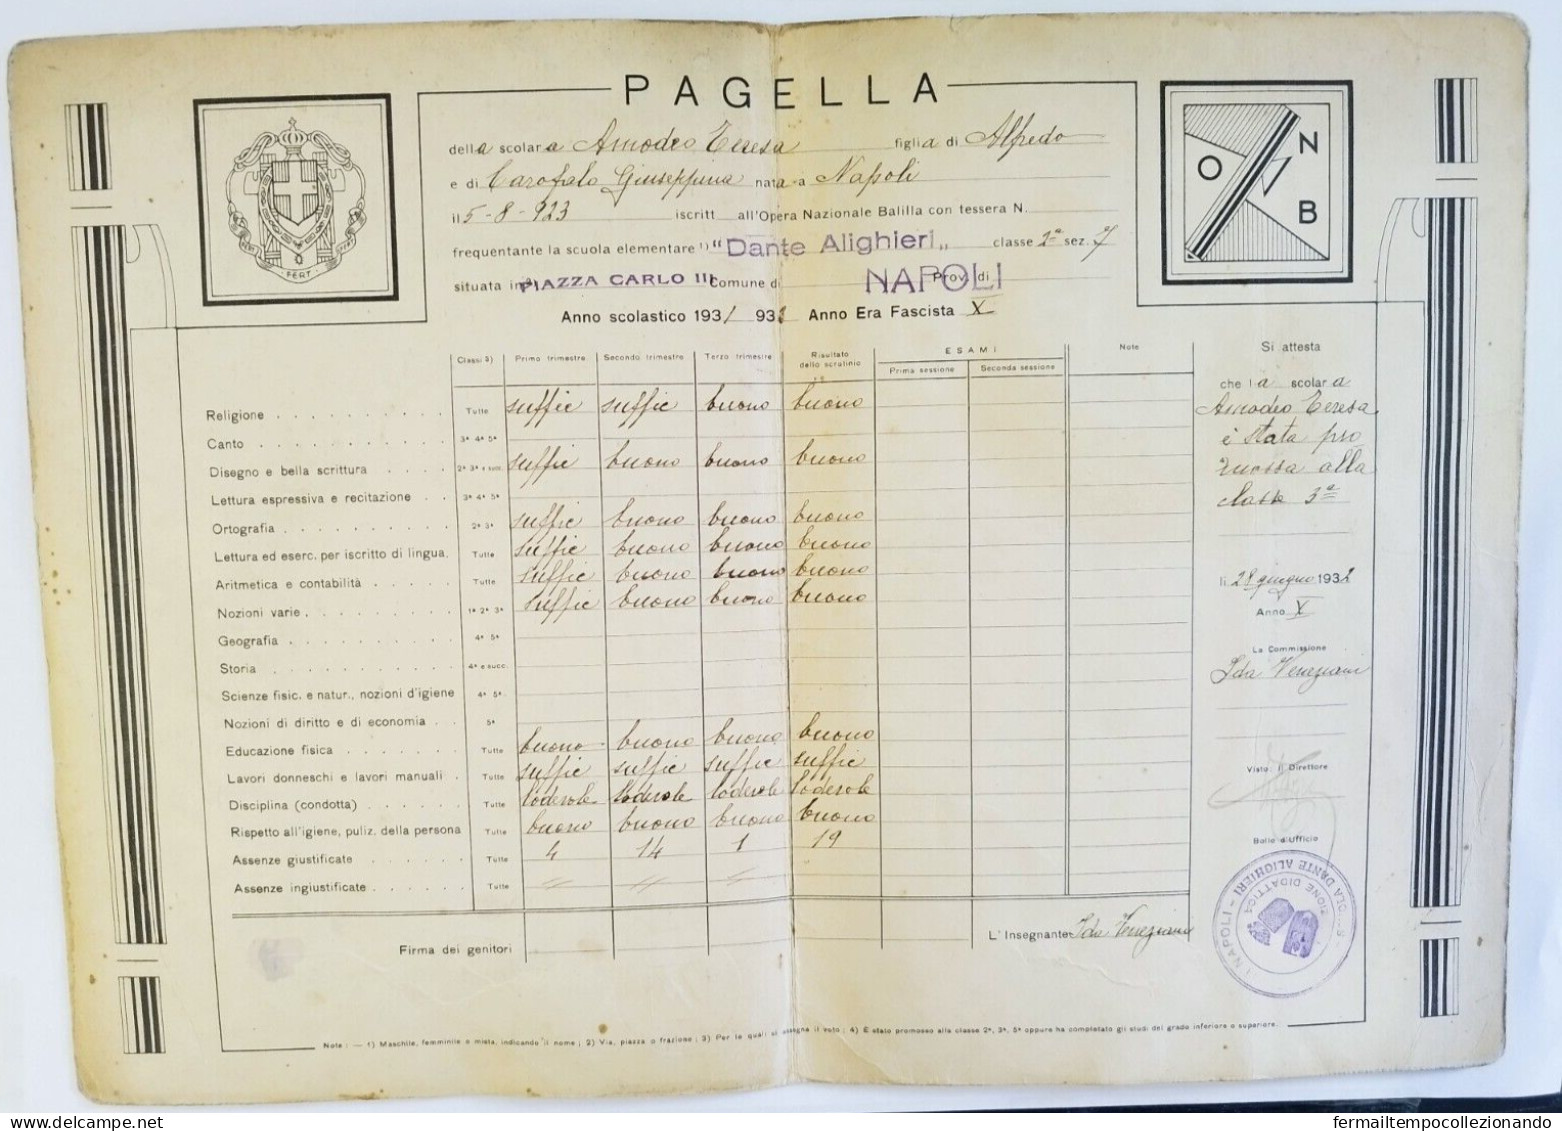 PAGELLA
della scolara Amodeo Teresa figlia di Alfredo
e di Garofalo Giuseppina nata a Napoli
il 5-8-923 iscritt all'Opera Nazionale Balilla con tessera N.
frequentante la scuola elementare 1) "Dante Alighieri" classe 2ª sez. 7
situata in 2) PIAZZA CARLO III Comune di NAPOLI Prov. di
Anno scolastico 1931 932 Anno Era Fascista X
O N B
FERT
Classi 3) Primo trimestre Secondo trimestre Terzo trimestre Risultato dello scrutinio ESAMI Prima sessione Seconda sessione Note
Religione Tutte suffic suffic buono buono
Canto 3ª 4ª 5ª
Disegno e bella scrittura 2ª 3ª e succ. suffic buono buono buono
Lettura espressiva e recitazione 3ª 4ª 5ª
Ortografia 2ª 3ª suffic buono buono buono
Lettura ed eserc. per iscritto di lingua. Tutte suffic buono buono buono
Aritmetica e contabilità Tutte suffic buono buono buono
Nozioni varie 1ª 2ª 3ª suffic buono buono buono
Geografia 4ª 5ª
Storia 4ª e succ.
Scienze fisic. e natur., nozioni d'igiene 4ª 5ª
Nozioni di diritto e di economia 5ª
Educazione fisica Tutte buono buono buono buono
Lavori donneschi e lavori manuali Tutte suffic suffic suffic suffic
Disciplina (condotta) Tutte lodevole lodevole lodevole lodevole
Rispetto all'igiene, puliz. della persona Tutte buono buono buono buono
Assenze giustificate Tutte 4 14 1 19
Assenze ingiustificate Tutte
Firma dei genitori
L'Insegnante Ida Veneziani
Si attesta
che la scolara
Amodeo Teresa
è stata pro
mossa alla
classe 3ª
li 28 giugno 1932
Anno X
La Commissione
Ida Veneziani
Visto: Il Direttore
Bollo d'Ufficio
DANTE ALIGHIERI - NAPOLI
DIDATTICA
Note: — 1) Maschile, femminile o mista, indicando il nome; 2) Via, piazza o frazione; 3) Per le quali si assegna il voto; 4) È stato promosso alla classe 2ª, 3ª, 5ª oppure ha completato gli studi del grado inferiore o superiore.
fermailtempocollezionando